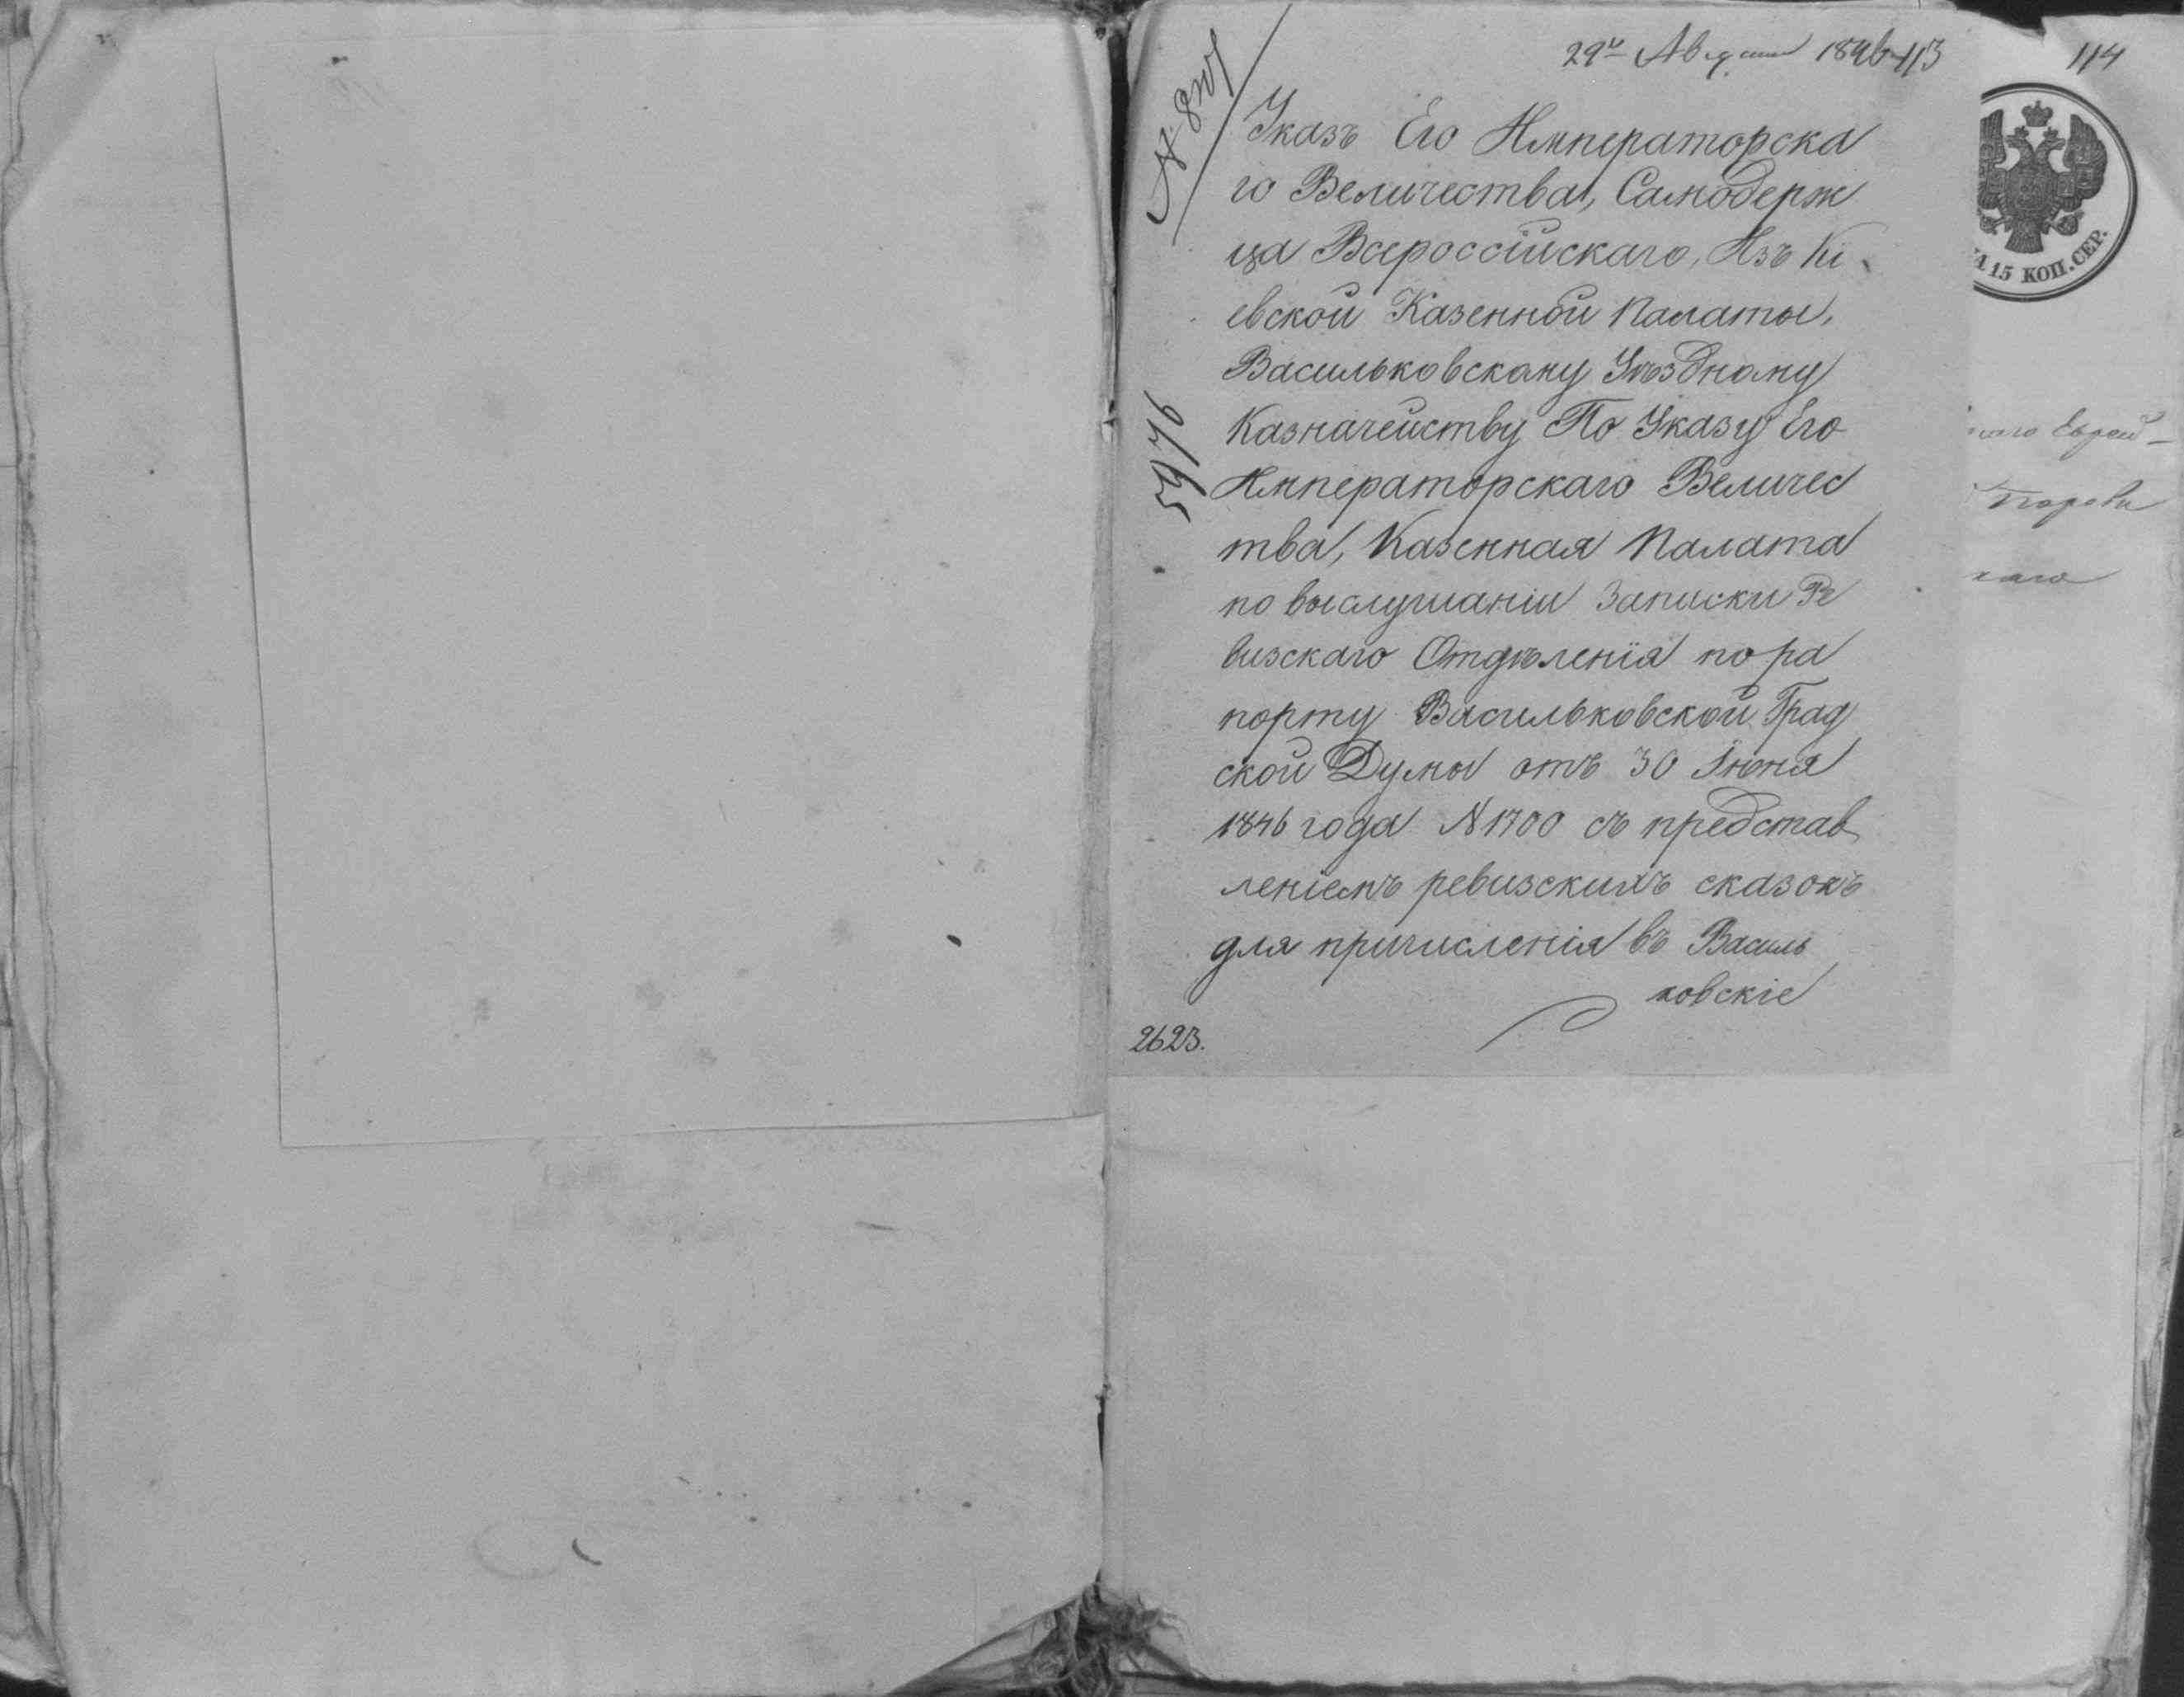 29го Августа 1846 113
114
Указъ Его Императорска
го Величества, Самодерж
ца Всероссійскаго, Изъ Кі
евской Казенной Палаты,
Васильковскому Уѣздному
Казначейству По Указу Его
Императорскаго Величес
тва, Казенная Палата
по выслушаніи Записки Ре
визскаго Отдѣленія по ра
порту Васильковской Град
ской Думы отъ 30 Іюня
1846 года N 1700 съ представ
леніемъ ревизскихъ сказокъ
для причисленія въ Василь
ковскіе
2623.
15 КОП. СЕР.
Еврей-
каго